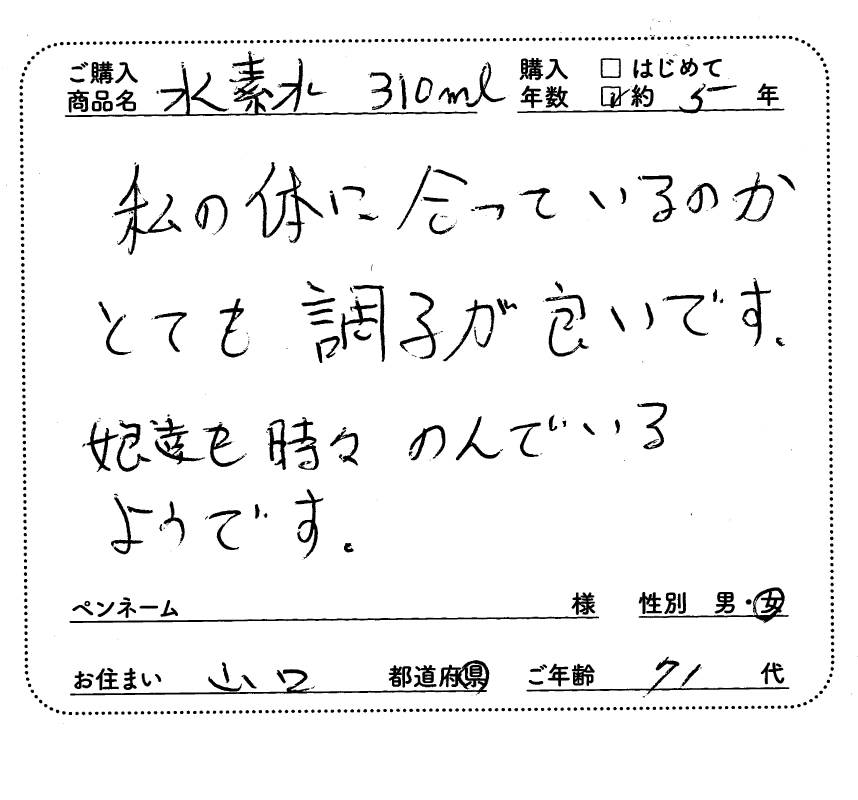 ご購入 商品名 水素水 310ml 購入 年数 □ はじめて ☑ 約 5 年
私の体に合っているのか
とても調子が良いです。
娘達も時々のんでいる
ようです。
ペンネーム 様 性別 男・女
お住まい 山口 都道府県 ご年齢 71 代